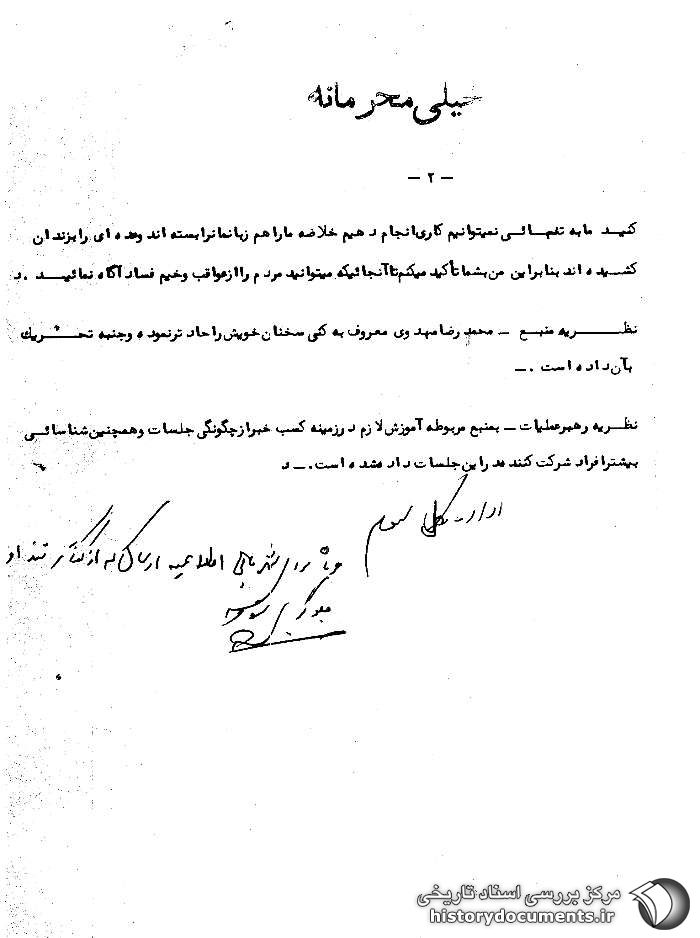 خیلی محرمانه
- ۲ -
کنید ما به تنهائی نمیتوانیم کاری انجام دهیم خلاصه ما را هم زبانمانرا بسته اند وعده ای را بزندان
کشیده اند بنابراین من بشما تأکید میکنم تا آنجائیکه میتوانید مردم را از عواقب وخیم فساد آگاه نمائید . د
نظریه منبع - محمد رضا مهدوی معروف به کنی سخنان خویش را حاد تر نموده و جنبه تحریک
بآن داده است . -
نظریه رهبر عملیات - بمنبع مربوطه آموزش لازم در زمینه کسب خبر از چگونگی جلسات و همچنین شناسائی
بیشتر افراد شرکت کننده در این جلسات داده شده است . - د
اداره کل سوم
شهربانی اطلاعیه ارسال که از گفتار تند او
جلوگیری شود
مرکز بررسی اسناد تاریخی
historydocuments.ir